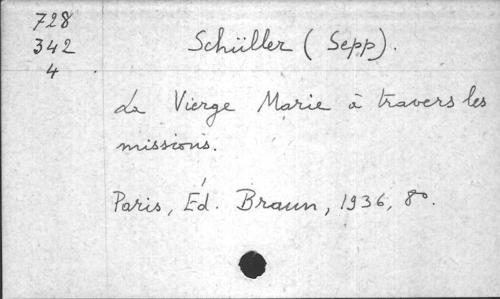 728
342
4
Schüller (Sepp).
La Vierge Marie à travers les
missions.
Paris, Éd. Braun, 1936, 8º.